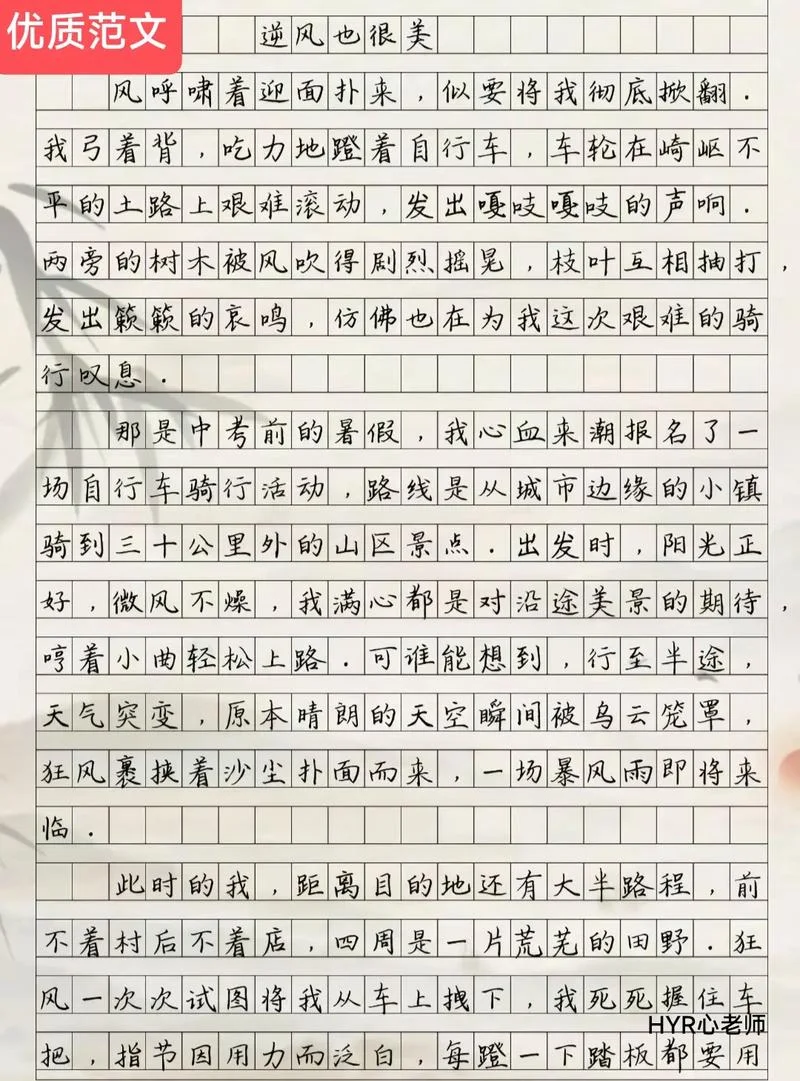 优质范文
逆风也很美
风呼啸着迎面扑来，似要将我彻底掀翻．
我弓着背，吃力地蹬着自行车，车轮在崎岖不
平的土路上艰难滚动，发出嘎吱嘎吱的声响．
两旁的树木被风吹得剧烈摇晃，枝叶互相抽打，
发出簌簌的哀鸣，仿佛也在为我这次艰难的骑
行叹息．
那是中考前的暑假，我心血来潮报名了一
场自行车骑行活动，路线是从城市边缘的小镇
骑到三十公里外的山区景点．出发时，阳光正
好，微风不燥，我满心都是对沿途美景的期待，
哼着小曲轻松上路．可谁能想到，行至半途，
天气突变，原本晴朗的天空瞬间被乌云笼罩，
狂风裹挟着沙尘扑面而来，一场暴风雨即将来
临．
此时的我，距离目的地还有大半路程，前
不着村后不着店，四周是一片荒芜的田野．狂
风一次次试图将我从车上拽下，我死死握住车
HYR心老师
把，指节因用力而泛白，每蹬一下踏板都要用